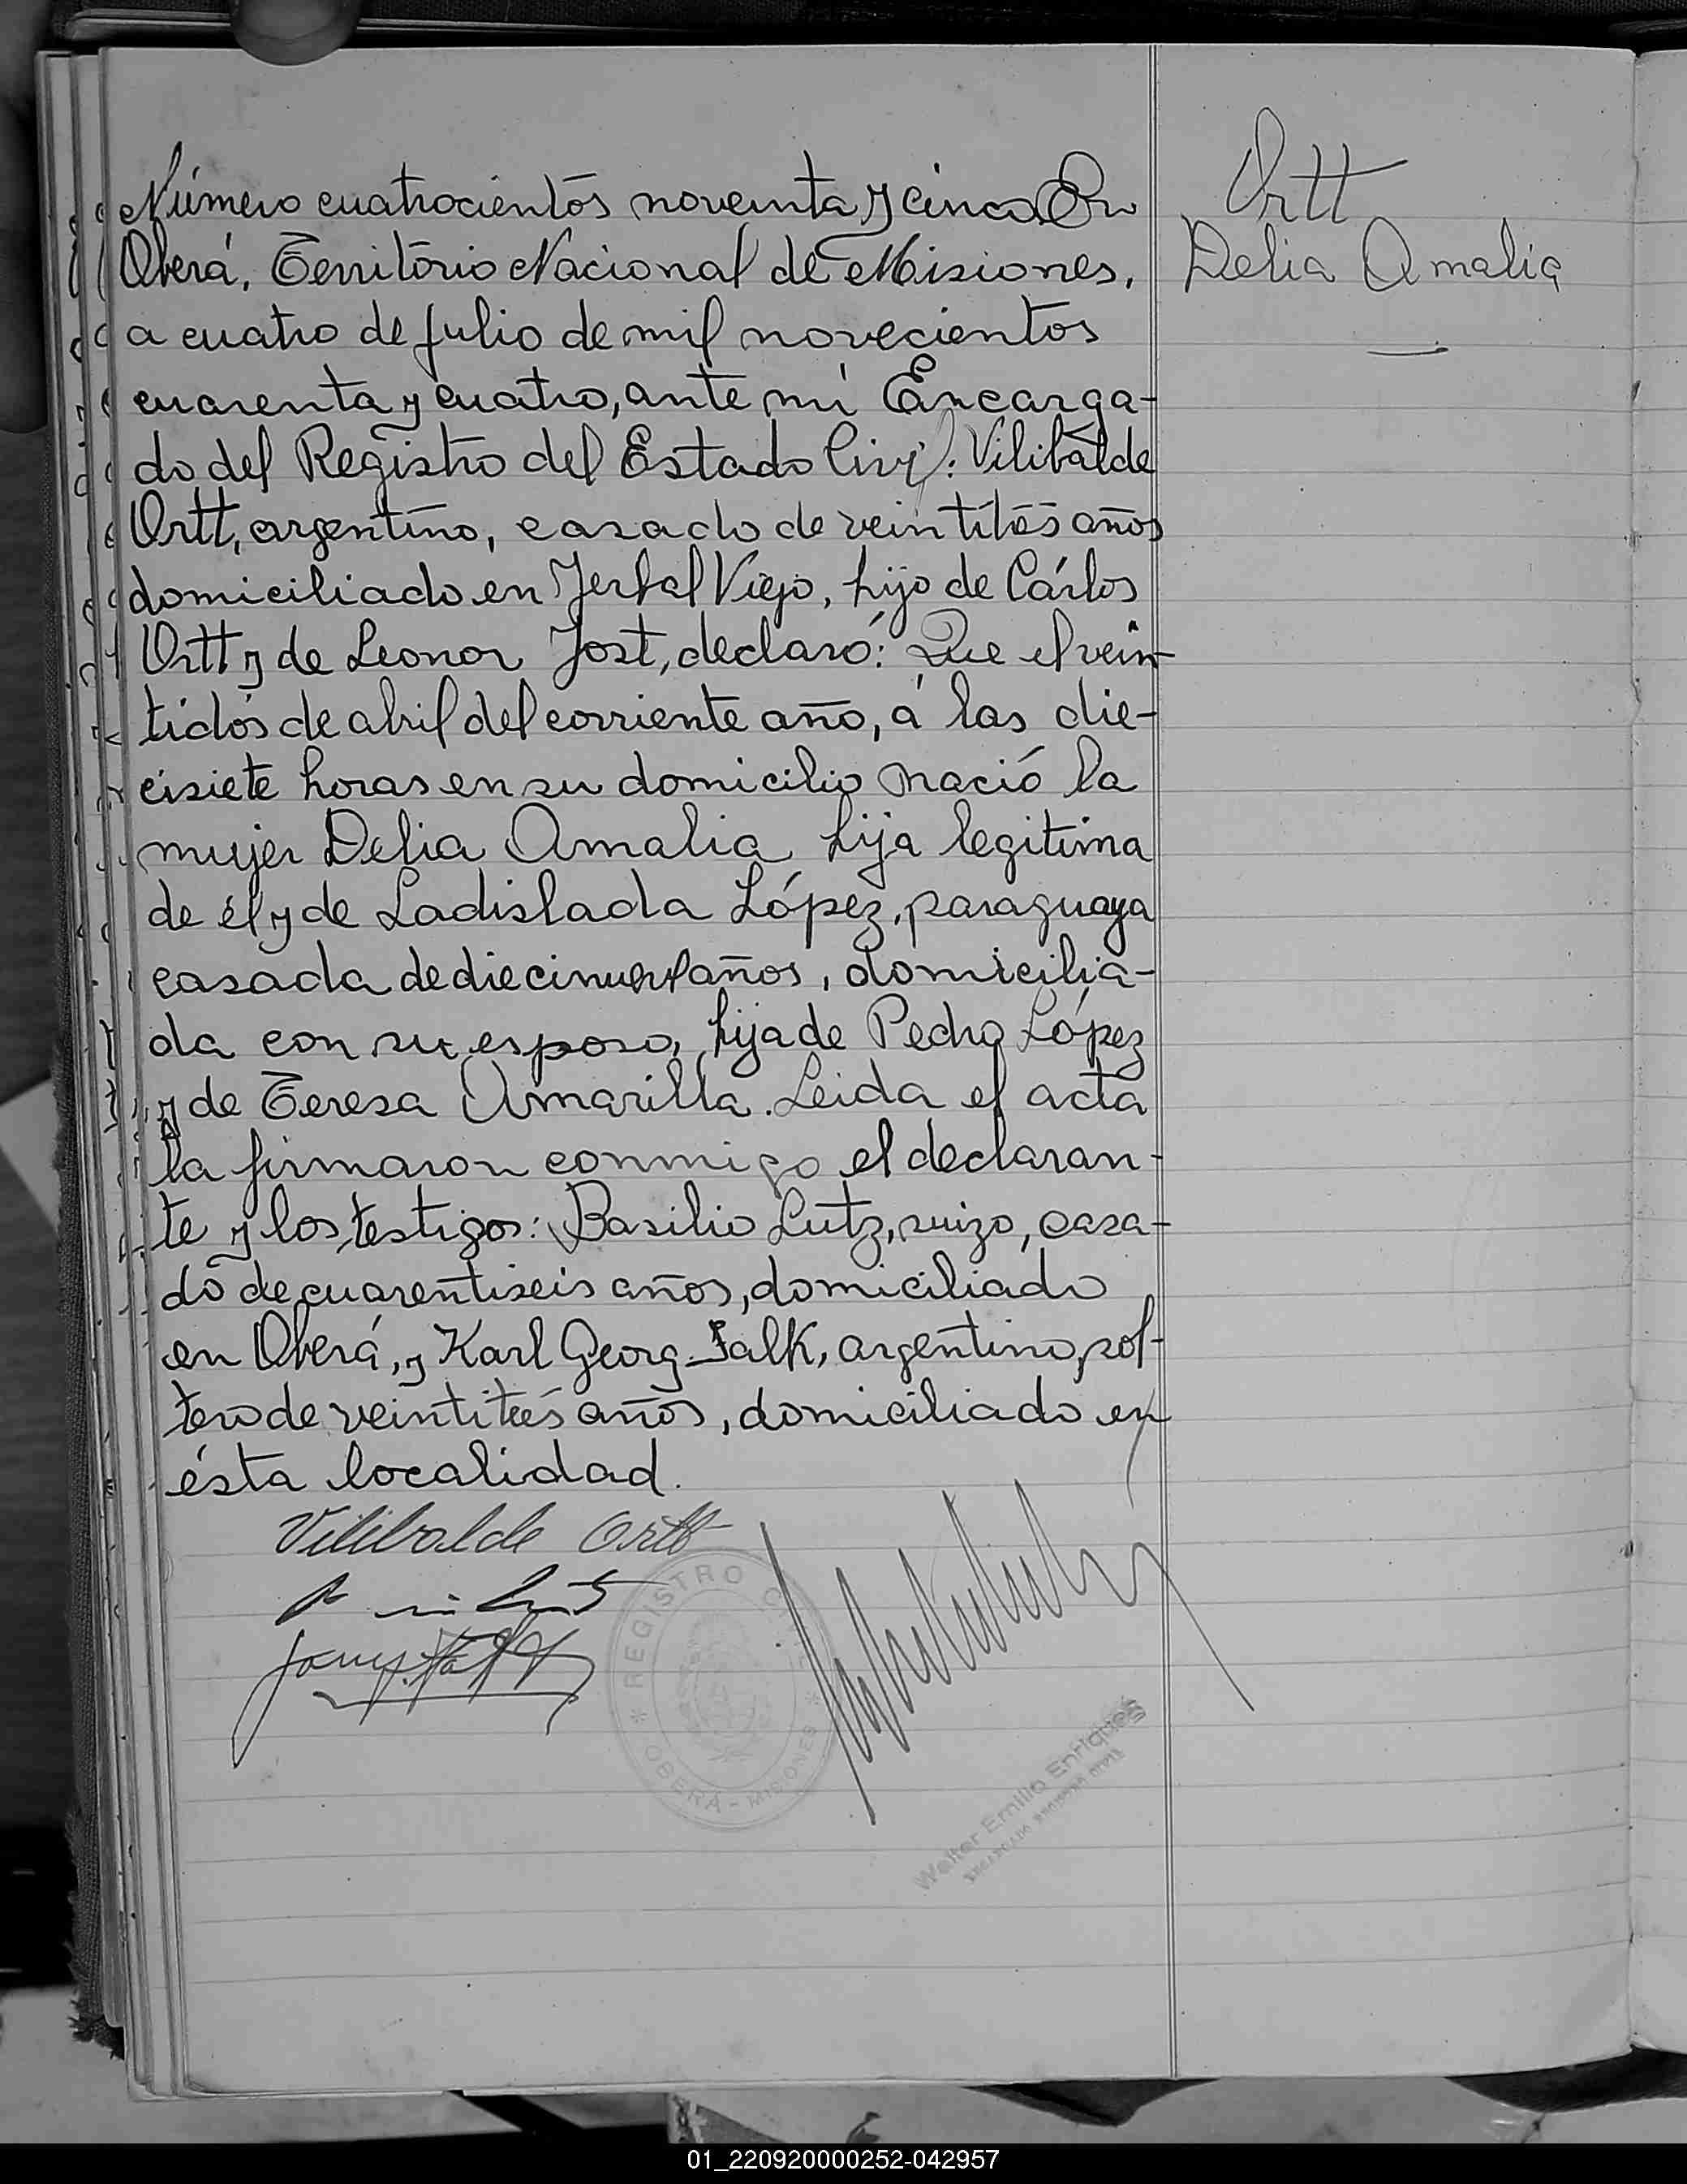 Número cuatrocientos noventa y cinco. En
Oberá, Territorio Nacional de Misiones,
a cuatro de julio de mil novecientos
cuarenta y cuatro, ante mí Encarga-
do del Registro del Estado Civil: Vilibalde
Ortt, argentino, casado de veintitrés años
domiciliado en Yerbal Viejo, hijo de Cárlos
Ortt y de Leonor Jost, declaró: Que el vein-
tidós de abril del corriente año, á las die-
cisiete horas en su domicilio nació la
mujer Delia Amalia hija legitima
de él y de Ladislada López, paraguaya
casada de diecinueve años, domicilia-
da con su esposo, hija de Pedro López
y de Teresa Amarilla. Leida el acta
la firmaron conmigo el declaran-
te y los testigos: Basilio Lutz, suizo, casa-
do de cuarentiseis años, domiciliado
en Oberá, y Karl Georg Falk, argentino, sol-
tero de veintitrés años, domiciliado en
ésta localidad.
Vilibalde Ortt
REGISTRO CIVIL
OBERÁ - MISIONES
Walter Emilio Enriques
ENCARGADO REGISTRO CIVIL
Ortt
Delia Amalia
01_220920000252-042957